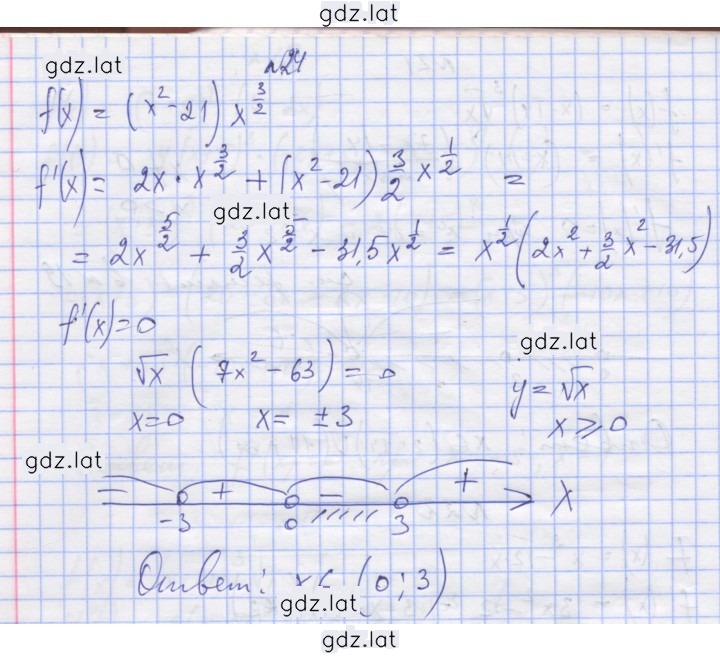 gdz.lat
gdz.lat
№24
f(x) = (x² - 21) x^{3/2}
f'(x) = 2x · x^{3/2} + (x² - 21) 3/2 x^{1/2} =
gdz.lat
= 2x^{5/2} + 3/2 x^{5/2} - 31,5x^{1/2} = x^{1/2} (2x² + 3/2 x² - 31,5)
f'(x) = 0
gdz.lat
√x (7x² - 63) = 0
y = √x
x = 0 x = ± 3
x ≥ 0
gdz.lat
+ − +
-3 0 3 X
Ответ: x ∈ (0; 3)
gdz.lat
gdz.lat